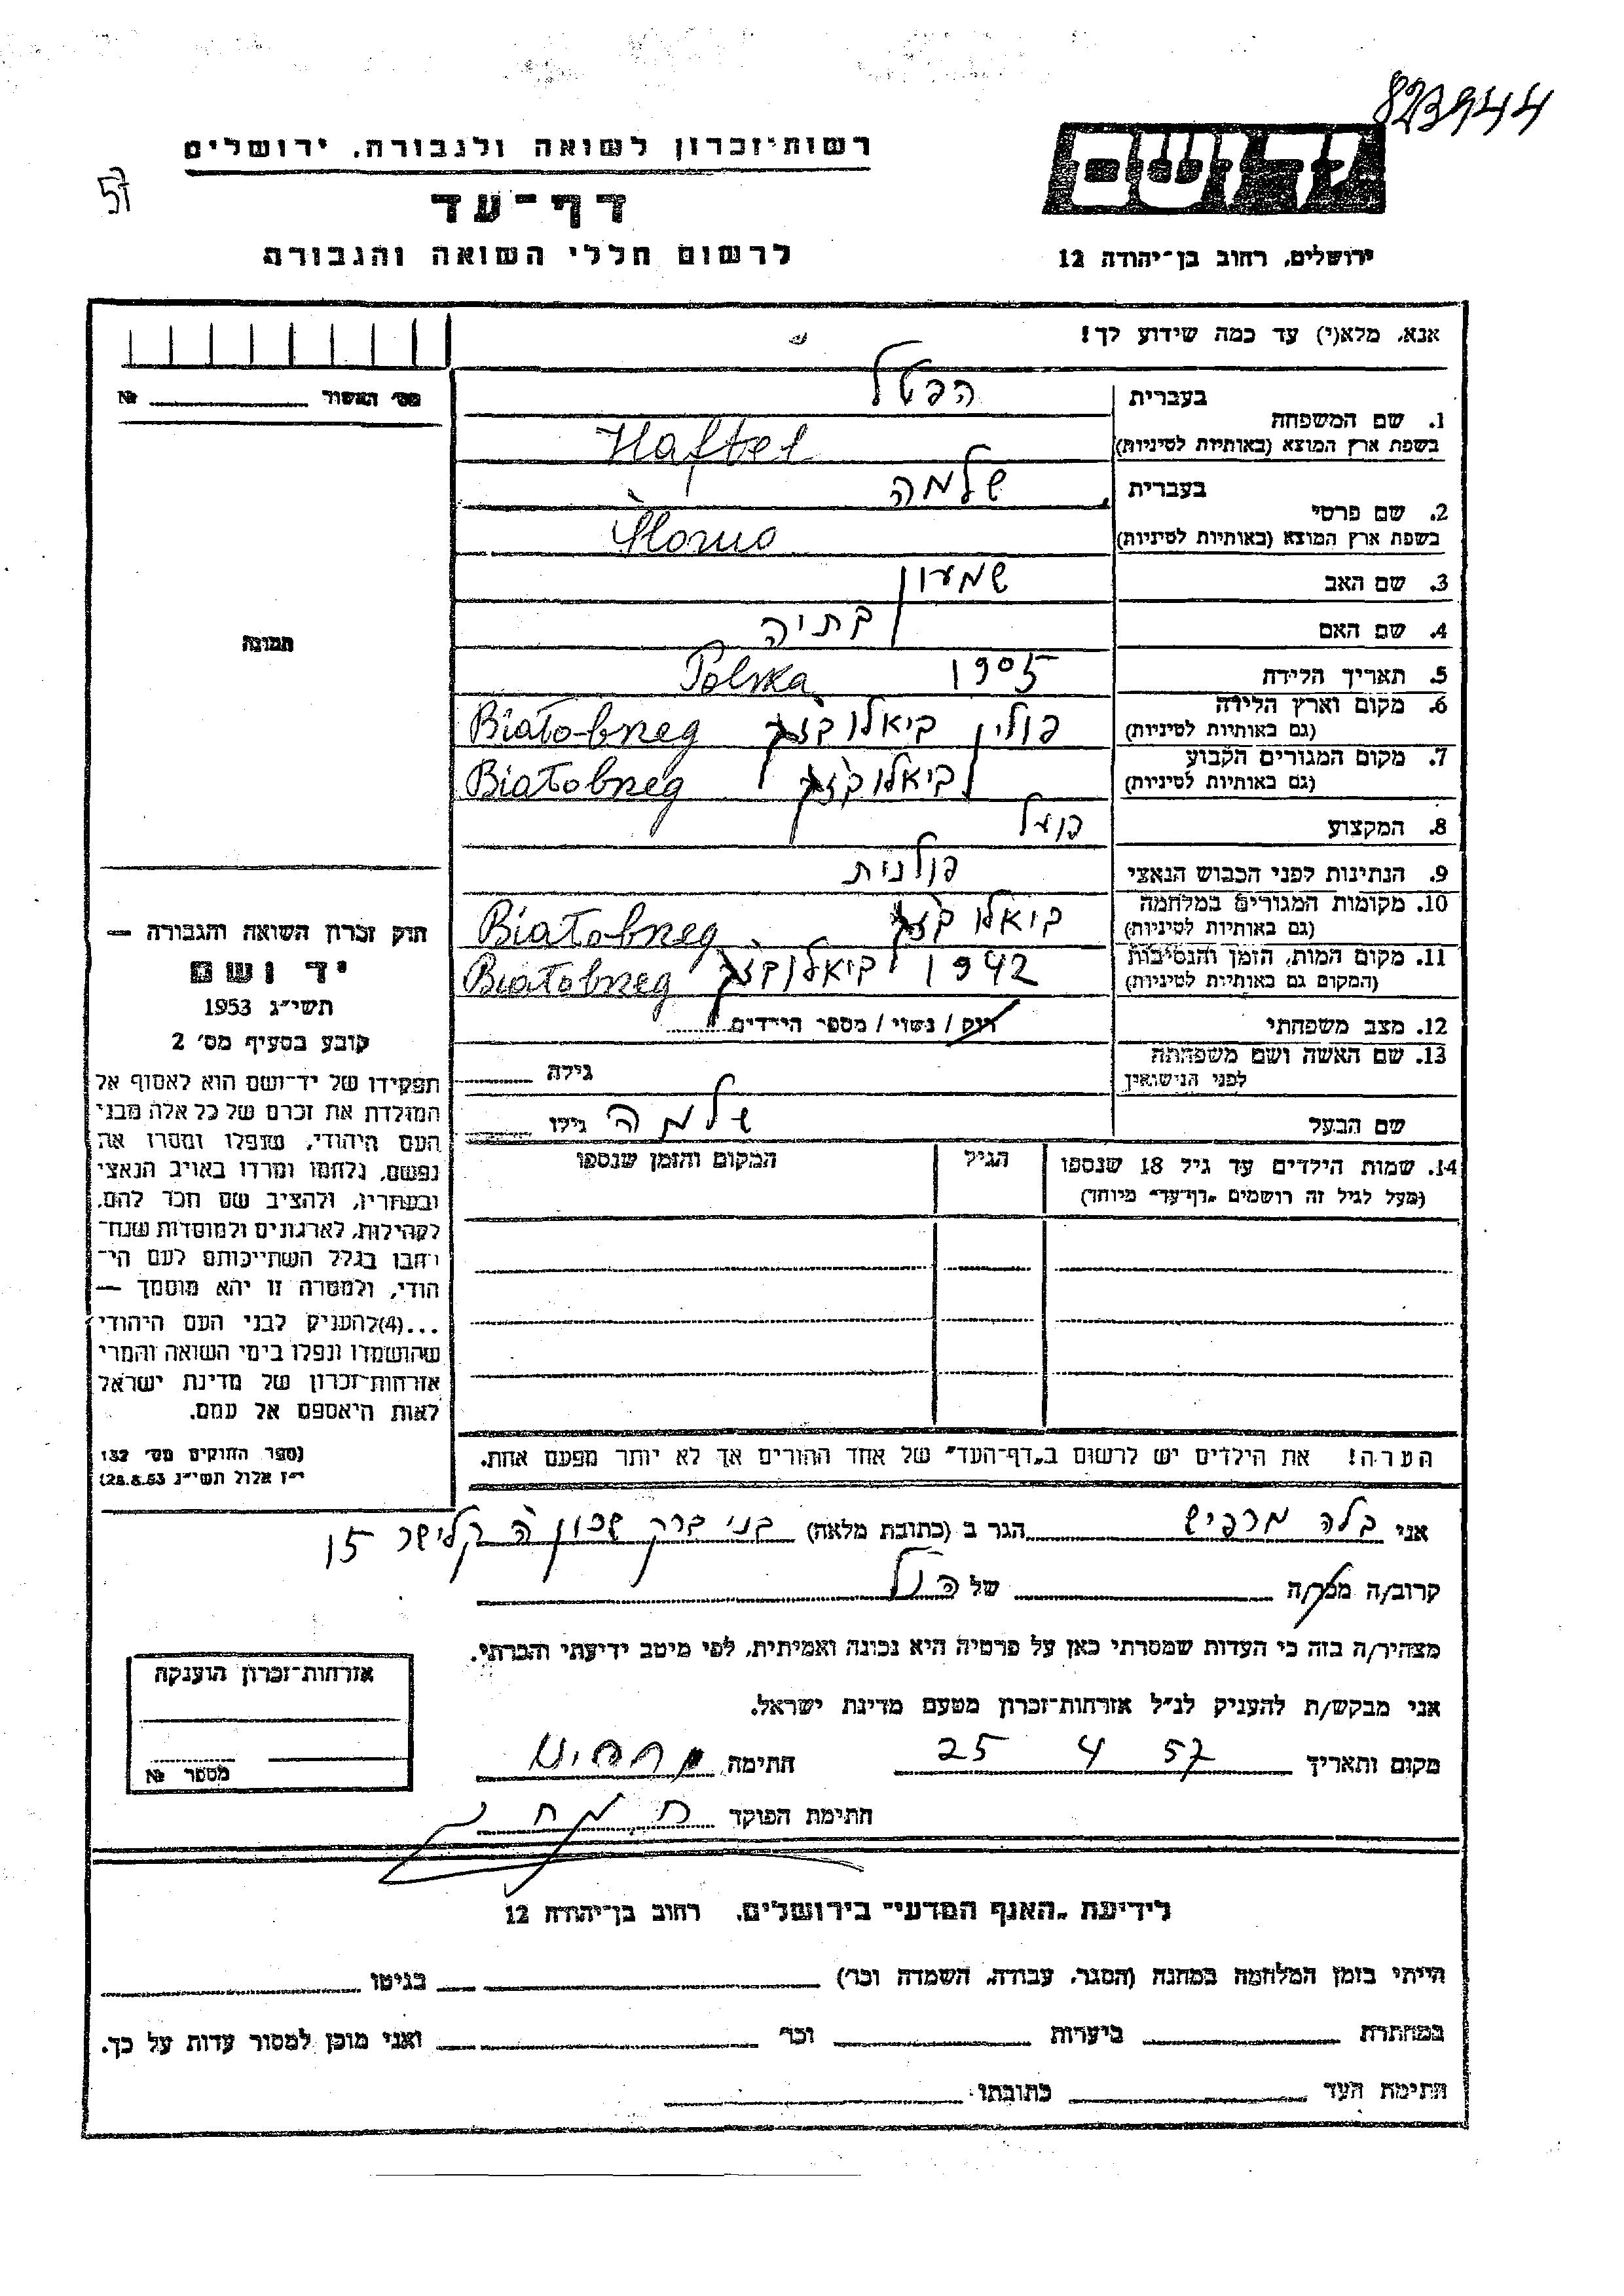 823944
רשות־זכרון לשואה ולגבורה, ירושלים
57
דף־עד
לרשום חללי השואה והגבורה
יד ושם
ירושלים, רחוב בן־יהודה 12
אנא, מלא(י) עד כמה שידוע לך!
מס׳ האשור № 
1. שם המשפחה בעברית הפטל
בשפת ארץ המוצא (באותיות לטיניות) Haftel
2. שם פרטי בעברית שלמה
בשפת ארץ המוצא (באותיות לטיניות) Šlomo
3. שם האב שמעון
4. שם האם בתיה
5. תאריך הלידה 1905 Polska
6. מקום וארץ הלידה (גם באותיות לטיניות) פולין ביאלובזג Biatobneg
7. מקום המגורים הקבוע (גם באותיות לטיניות) ביאלובזג Biatobneg
8. המקצוע פועל
9. הנתינות לפני הכבוש הנאצי פולנית
10. מקומות המגורים במלחמה (גם באותיות לטיניות) ביאלובזג Biatobneg
11. מקום המות, הזמן והנסיבות (המקום גם באותיות לטיניות) 1942 ביאלובזג Biatobneg
12. מצב משפחתי רווק / נשוי / מספר הילדים
13. שם האשה ושם משפחתה לפני הנישואין גילה
שם הבעל שלמה גילו
14. שמות הילדים עד גיל 18 שנספו הגיל המקום והזמן שנספו
(מעל לגיל זה רושמים „דף־עד״ מיוחד)
הערה! את הילדים יש לרשום ב„דף־העד״ של אחד ההורים אך לא יותר מפעם אחת.
תמונה
חוק זכרון השואה והגבורה —
יד ושם
תשי״ג 1953
קובע בסעיף מס׳ 2
תפקידו של יד־ושם הוא לאסוף אל
המולדת את זכרם של כל אלה מבני
העם היהודי, שנפלו ומסרו את
נפשם, נלחמו ומרדו באויב הנאצי
ובעוזריו, ולהציב שם וזכר להם,
לקהילות, לארגונים ולמוסדות שנח־
רבו בגלל השתייכותם לעם הי־
הודי, ולמטרה זו יהא מוסמך —
...(4)להעניק לבני העם היהודי
שהושמדו ונפלו בימי השואה והמרי
אזרחות־זכרון של מדינת ישראל
לאות היאספם אל עמם.
(ספר החוקים מס׳ 132
י״ז אלול תשי״ג 28.8.53)
אני בלה מרפיש הגר ב (כתובת מלאה) בני ברק שכון ה קלישר 15
קרוב/ה מכר/ה של הנ״ל
מצהיר/ה בזה כי העדות שמסרתי כאן על פרטיה היא נכונה ואמיתית, לפי מיטב ידיעתי והכרתי.
אני מבקש/ת להעניק לנ״ל אזרחות־זכרון מטעם מדינת ישראל.
מקום ותאריך 25 4 57 חתימה
חתימת הפוקד
אזרחות־זכרון הוענקה
מספר №
לידיעת „האגף המדעי״ בירושלים, רחוב בן־יהודה 12
הייתי בזמן המלחמה במחנה (הסגר, עבודה, השמדה וכר׳) בגיטו
במחתרת ביערות וכר׳ ואני מוכן למסור עדות על כך.
חתימת העד כתובתו